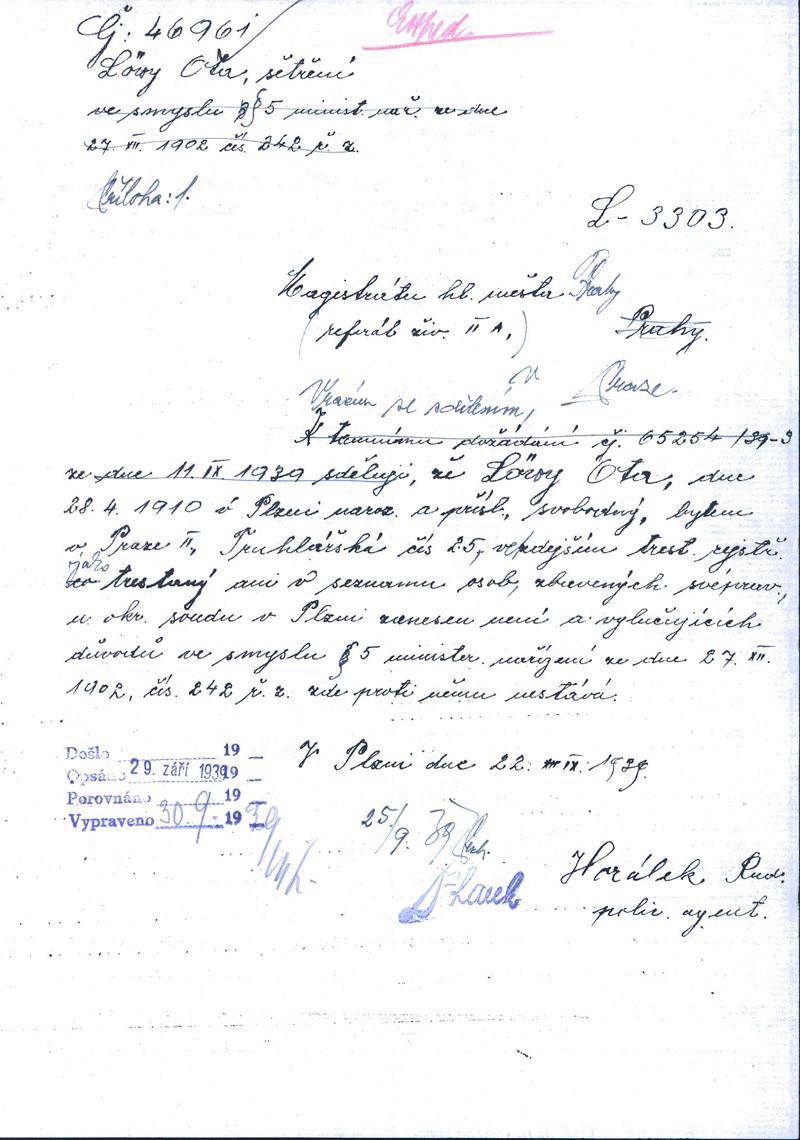 Čj: 46961
Löwy Ota, šetření
ve smyslu § 5 minist. nař. ze dne
27. XII. 1902 čís. 242 ř. z.
Příloha: 1.
L - 3303.
Magistrátu hl. města Prahy
(referát živ. II A,) Prahy.
v Praze.
Vracím se sdělením,
K tamnímu dožádání čj. 65254/39-3
ze dne 11. IX. 1939 sděluji, že Löwy Ota, dne
28. 4. 1910 v Plzni naroz. a přísl., svobodný, bytem
v Praze II., Truhlářská čís 25, ve zdejším trest. rejstř.
jako
co trestaný ani v seznamu osob, zbavených svépráv.,
u okr. soudu v Plzni zanesen není a vylučujících
důvodů ve smyslu § 5 minister. nařízení ze dne 27. XII.
1902, čís. 242 ř. z. zde proti němu nestává.
V Plzni dne 22. IX. 1939.
Došlo 19
Opsáno 29. září 1939 19
Porovnáno 19
Vypraveno 30. 9. 19 39
25/9. 39
Horálek Rud.
polic. agent.